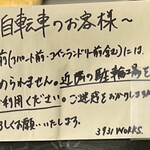 自転車のお客様～
前(アパート前・コインランドリー前含む)には
められません。近隣の駐輪場を
利用ください。ご迷惑をおかけしま
しくお願いいたします。
3931 WORKS.